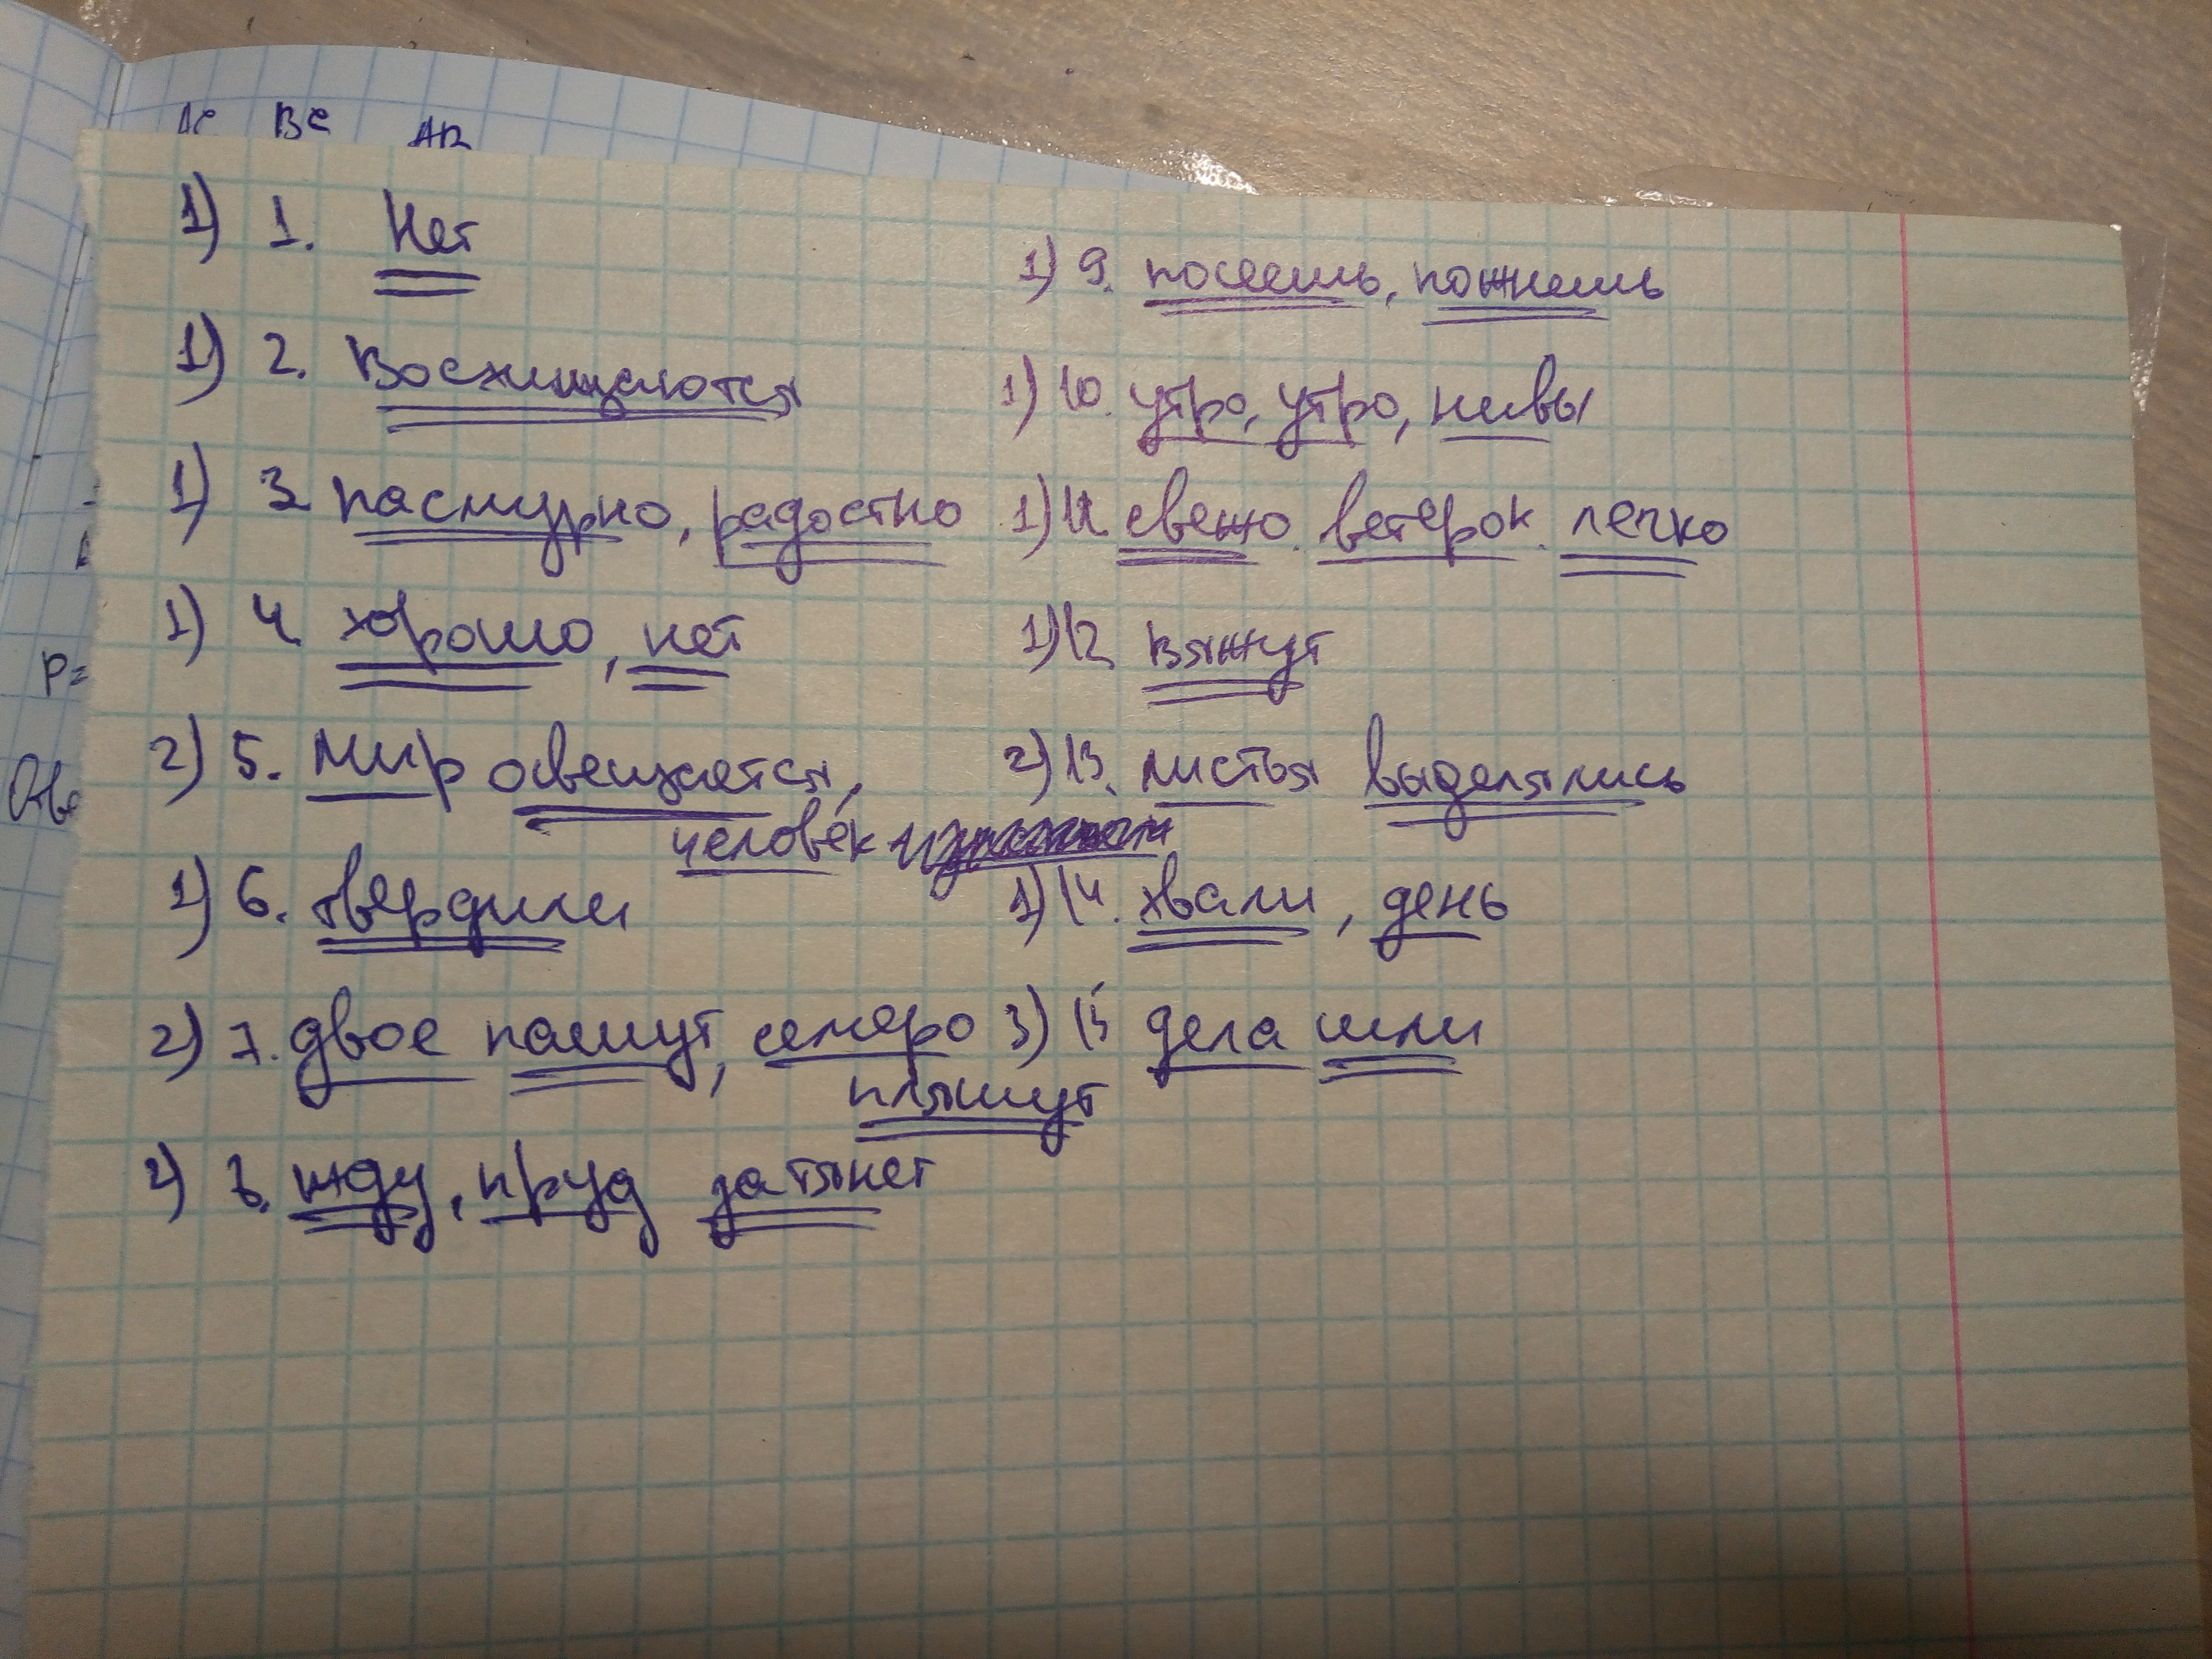 Ас Вс АВ
1) 1. Нет
1) 2. Восхищаются
1) 3 пасмурно, радостно
1) 4 хорошо, нет
2) 5. Мир освещается,
человек
1) 6. твердили
2) 7. двое пашут, семеро
пляшут
2) 8. жду, пруд затянет
1) 9. посеешь, пожнешь
1) 10. утро, утро, нивы
1) 11. свежо. ветерок. легко
1) 12 вяжут
2) 13. листья выделялись
1) 14. хвали, день
3) 15 дела шли
P=
Отве